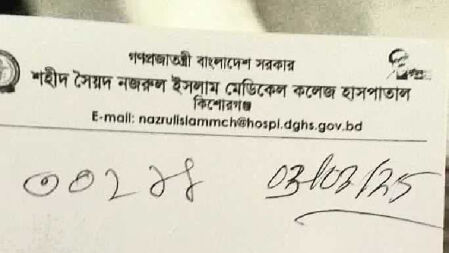 গণপ্রজাতন্ত্রী বাংলাদেশ সরকার
শহীদ সৈয়দ নজরুল ইসলাম মেডিকেল কলেজ হাসপাতাল
কিশোরগঞ্জ
E-mail: nazrulislammch@hospi.dghs.gov.bd
03/03/25